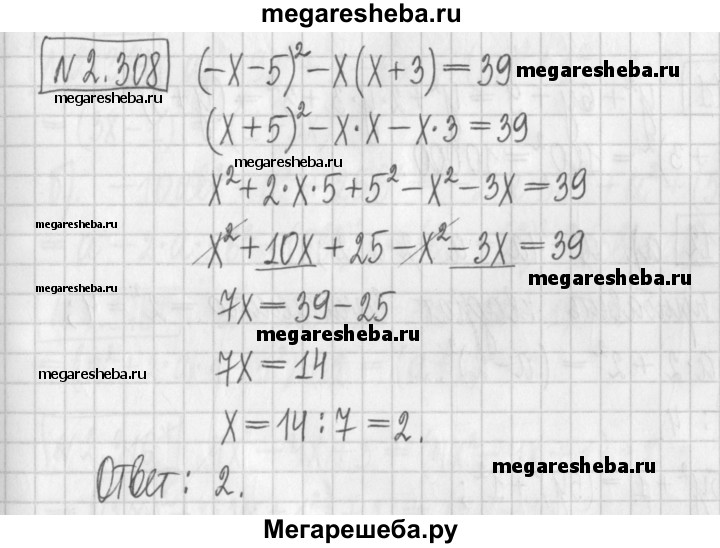 megaresheba.ru
N 2.308 (-x-5)² - x(x+3) = 39 megaresheba.ru
megaresheba.ru
(x+5)² - x·x - x·3 = 39
megaresheba.ru
x² + 2·x·5 + 5² - x² - 3x = 39
megaresheba.ru
x² + 10x + 25 - x² - 3x = 39
megaresheba.ru
megaresheba.ru
7x = 39 - 25
megaresheba.ru
7x = 14
megaresheba.ru
x = 14 : 7 = 2.
Ответ: 2.
megaresheba.ru
Мегарешеба.ру